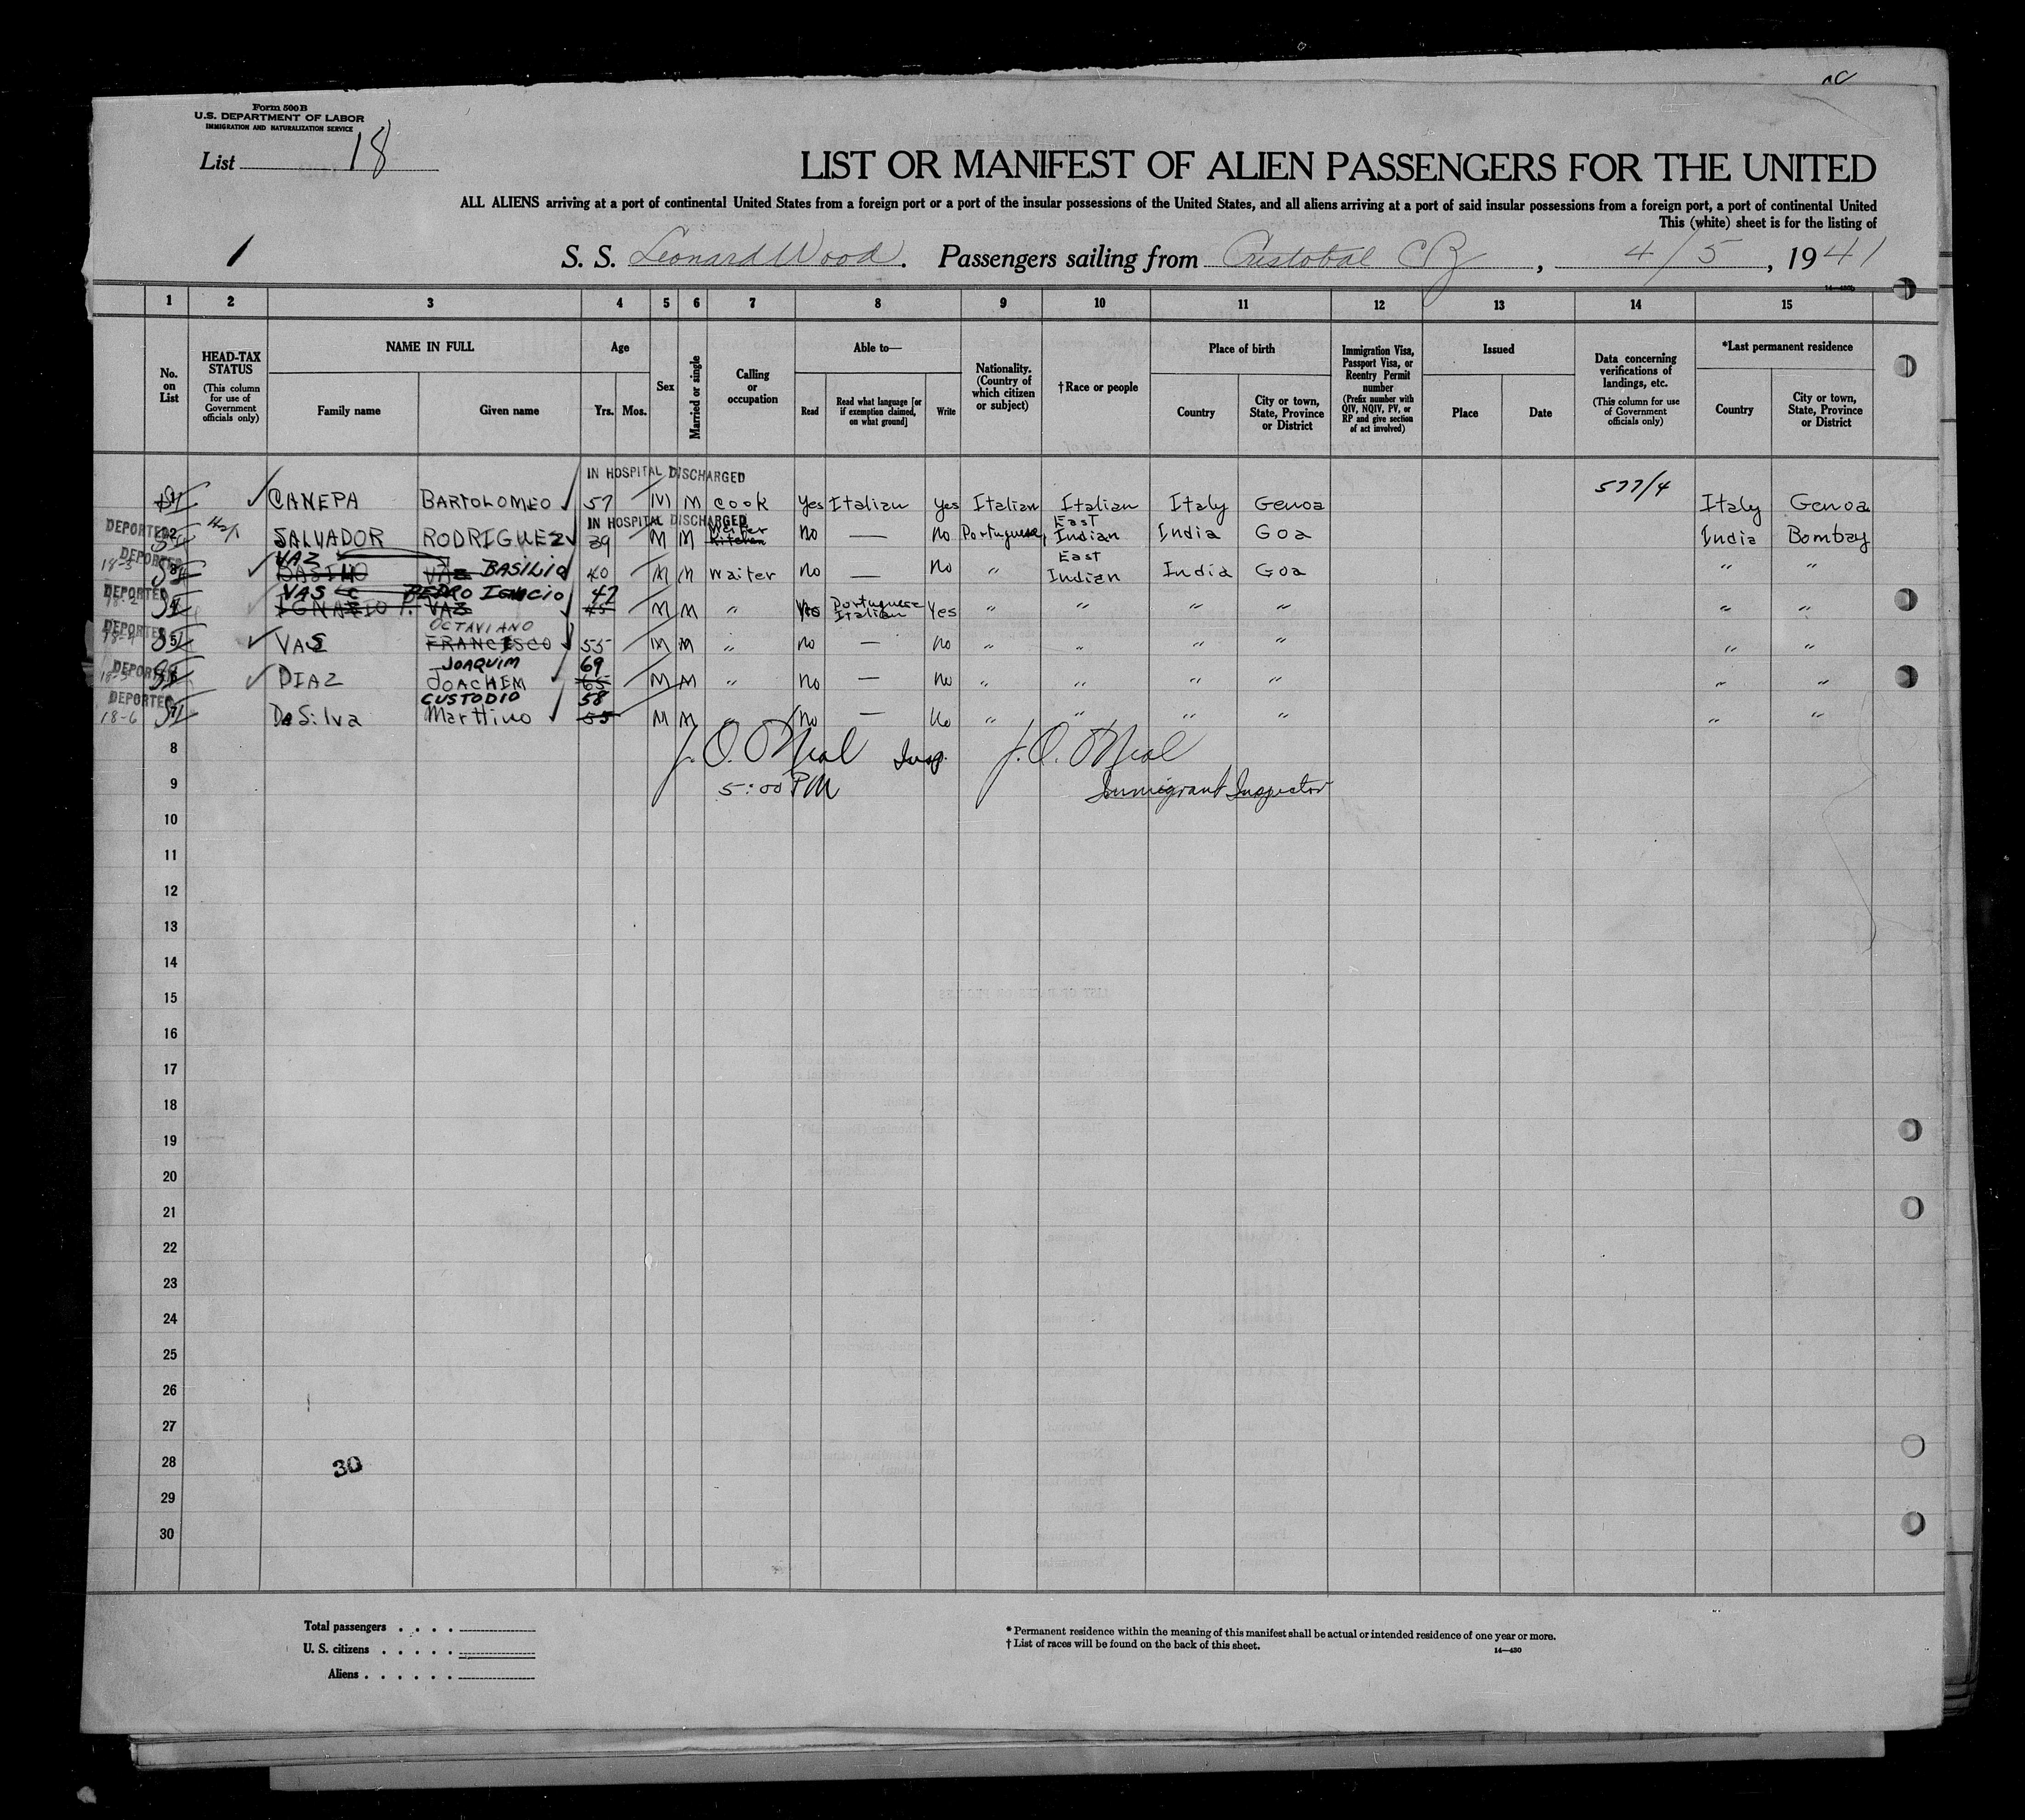 Form 500 B
U.S. DEPARTMENT OF LABOR
IMMIGRATION AND NATURALIZATION SERVICE
List 18
LIST OR MANIFEST OF ALIEN PASSENGERS FOR THE UNITED
ALL ALIENS arriving at a port of continental United States from a foreign port or a port of the insular possessions of the United States, and all aliens arriving at a port of said insular possessions from a foreign port, a port of continental United
This (white) sheet is for the listing of
1 S. S. Leonard Wood. Passengers sailing from Cristobal CZ, 4/5, 1941
1 2 3 4 5 6 7 8 9 10 11 12 13 14 15
No. on List
HEAD-TAX STATUS (This column for use of Government officials only)
NAME IN FULL
Family name Given name
Age
Yrs. Mos.
Sex
Married or single
Calling or occupation
Able to—
Read Read what language [or if exemption claimed, on what ground] Write
Nationality. (Country of which citizen or subject)
†Race or people
Place of birth
Country City or town, State, Province or District
Immigration Visa, Passport Visa, or Reentry Permit number (Prefix number with QIV, NQIV, PV, or RP and give section of act involved)
Issued
Place Date
Data concerning verifications of landings, etc. (This column for use of Government officials only)
*Last permanent residence
Country City or town, State, Province or District
IN HOSPITAL DISCHARGED
CANEPA BARTOLOMEO 57 M M Cook Yes Italian Yes Italian Italian Italy Genoa 577/4 Italy Genoa
IN HOSPITAL DISCHARGED
DEPORTED SALVADOR RODRIGUEZ 39 M M Waiter Kitchen No — No Portuguese, East Indian India Goa India Bombay
DEPORTED VAZ BASILIO 40 M M Waiter No — No " East Indian India Goa " "
DEPORTED VAS PEDRO IGNACIO 47
18-2 IGNAZIO P. VAZ 45 M M " Yes Portuguese Italian Yes " " " " " "
DEPORTED OCTAVIANO
18-4 VAS FRANCISCO 55 M M " no — no " " " " " "
JOAQUIM 69
DEPORTED DIAZ JOACHIM 65 M M " no — no " " " " " "
DEPORTED CUSTODIO 58
18-6 DeSilva Marttino 55 M M " no — No " " " " " "
8 J. O. O'Neal Insp. J. O. O'Neal
9 5:00 PM Immigrant Inspector
10
11
12
13
14
15
16
17
18
19
20
21
22
23
24
25
26
27
28 30
29
30
Total passengers . . . .
U. S. citizens . . . . .
Aliens . . . . . .
* Permanent residence within the meaning of this manifest shall be actual or intended residence of one year or more.
† List of races will be found on the back of this sheet.
14—430